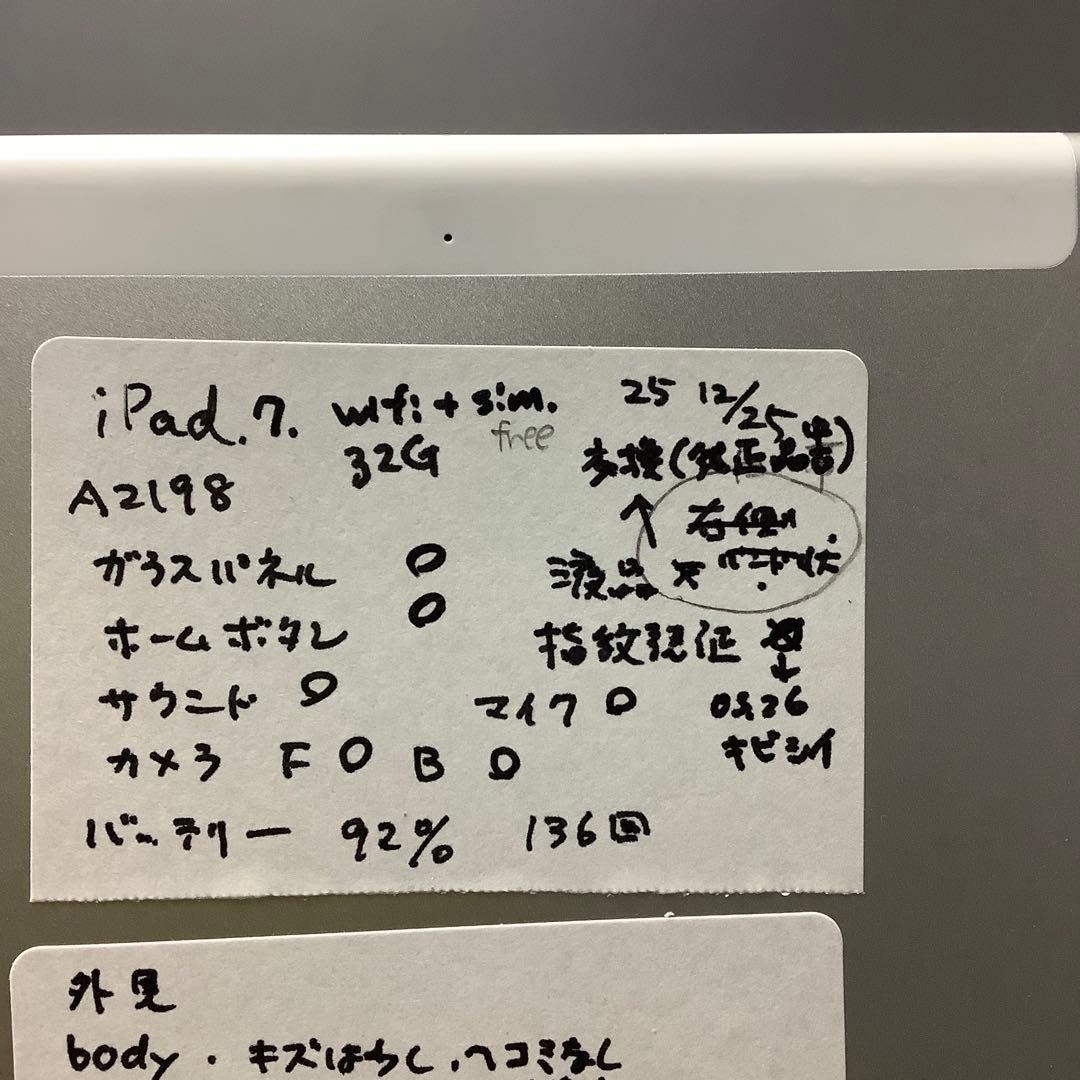 iPad.7. wifi + sim. 25 12/25
free
32G 交換(純正品)
A2198
右側
ガラスパネル O 液晶
ホームボタン O 指紋認証
サウンド O マイク O
カメラ F O B O キビシイ
バッテリー 92% 136回
外見
body . キズ ヘコミなし